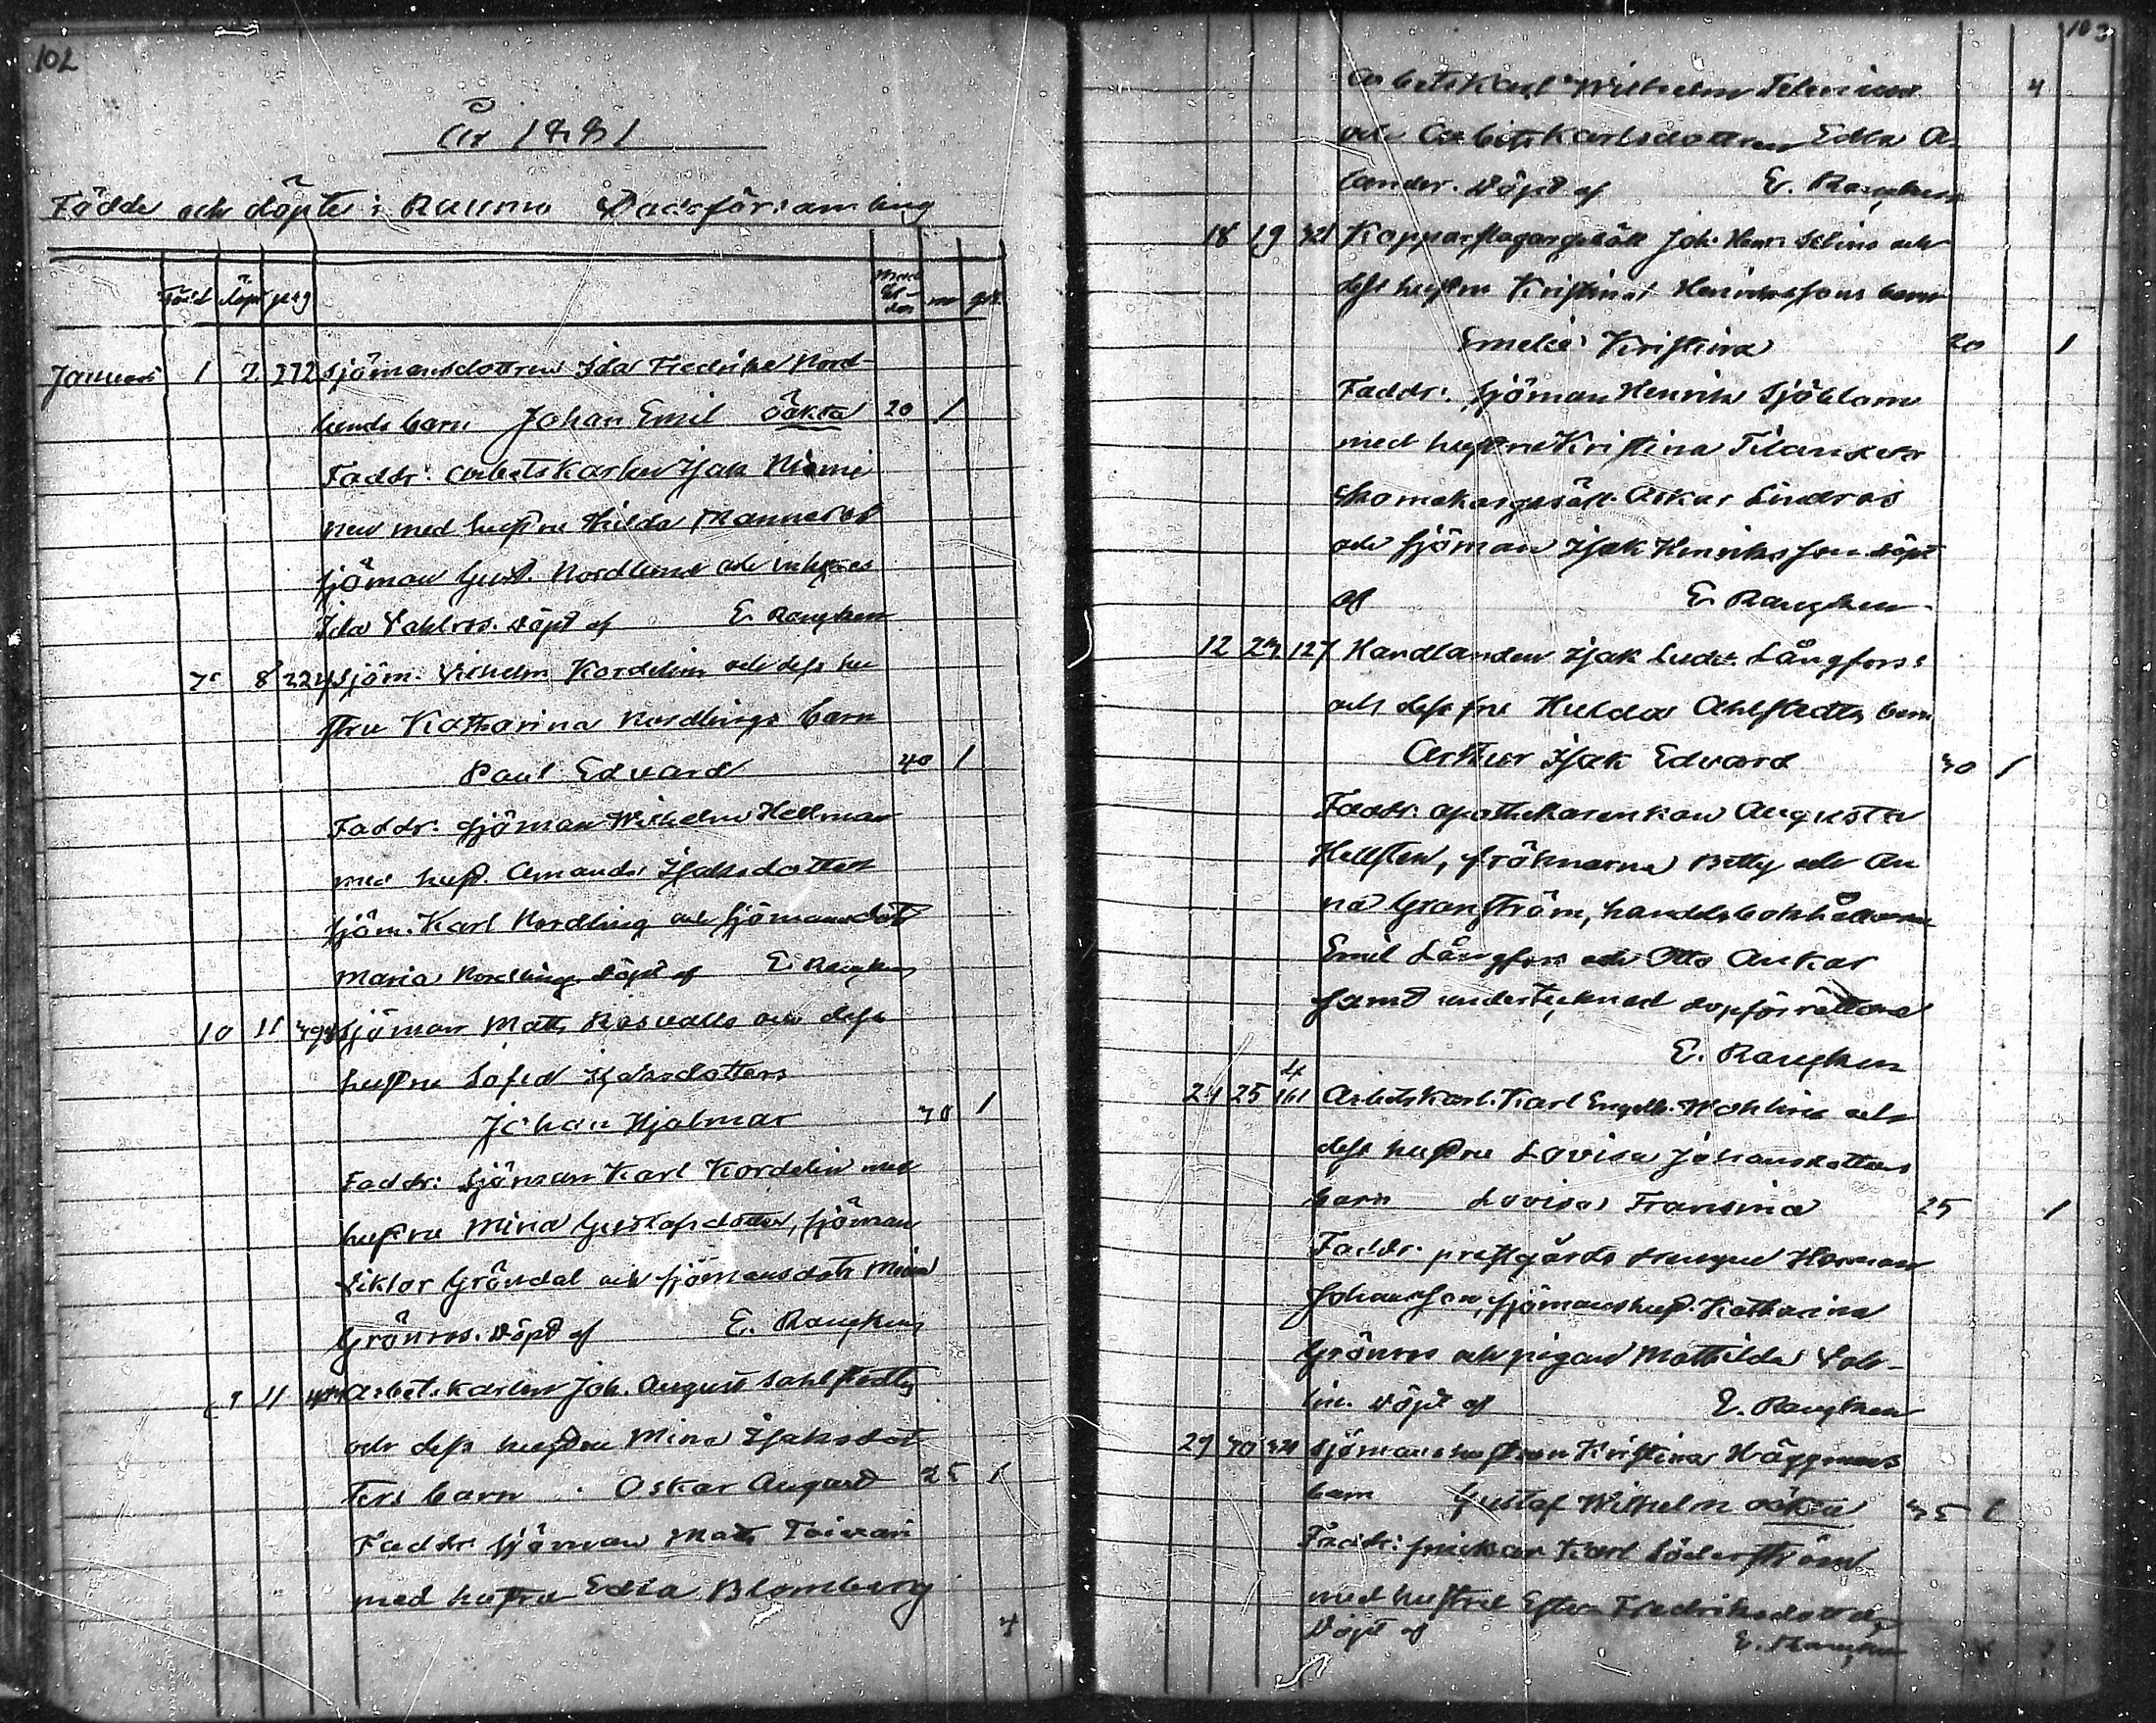 102
År 1881
Födde och döpte i Raumo Stadsförsamling
Född döpt pag mk gk
Januari 1 2. 272 sjömansdottren Ida Fredrika Nord-
lunds barn Johan Emil oäkta 20 1
Faddr: arbetskarlen Isak Niemi
nen med hustru Hilda Mannerst
sjöman Gust. Nordlund och inhyses
Ida Dahlros. Döpt af E. Rangken
7 8 224 sjöm. Vilhelm Kordelin och dess hu
stru Katharina Nordlings barn
Paul Edvard 40 1
Faddr: sjöman Wilhelm Hellman
med hust. Amanda Isaksdotter
sjöm. Karl Nordling och sjömansdot
Maria Nordling. Döpt af E. Rangken
10 11 sjöman Matts Rosvalls och dess
hustru Sofia Isaksdotters
Johan Hjalmar 30 1
Faddr: Sjöman Karl Kordelin med
hustru Mina Gustafsdotter, sjöman
Viktor Gröndal och sjömansdotr Mina
Grönros. Döpt af E. Rangken
9 11 Arbet.karlen Joh. August Sahlstedts
och dess hustru Mina Isaksdot
ters barn Oskar August 25 1
Faddr: sjöman Matts Toivari
med hustru Edla Blomberg
4
103
Arbetskarl Wilhelm 4
och Arbetskarlsdottren Edla A-
lander. Döpt af E. Rangken
18 19 321 Kopparslagargesäll Joh. Henr. Selins och
dess hustru Kristina Henrikssons barn
Emelie Kristina 20 1
Faddr: sjöman Henrik Sjöblom
med hustru Kristina Tilander
skomakargesäll Oskar Lindros
och sjöman Isak Henriksson. Döpt
af E. Rangken
12 23 127 Handlanden Isak Ludv. Långfors
och dess fru Hulda Ahlstedts barn
Arthur Isak Edvard 30 1
Faddr: apothekarenkan Augusta
Hellsten, fröknarna Betty och An
na Granström, handelsbokhållarne
Emil Långfors och Otto Ankar
samt undertecknad dopförrättare
E. Rangken
24 25 161 Arbetskarl. Karl Engelb. Wahlins och
dess hustru Lovisa Johansdotters
barn Lovisa Fransina 25 1
Faddr: prestgårds drengen Herman
Johansson, sjömanshust. Katharina
Grönros och pigan Mathilda Dah-
lin. Döpt af E. Rangken
29 30 321 Sjömanshustrun Kristina Häggmans
barn Gustaf Wilhelm oäkta 35 1
Faddr: snickar Karl Söderström
med hustru Ester Fredriksdotter
Döpt af E. Rangken